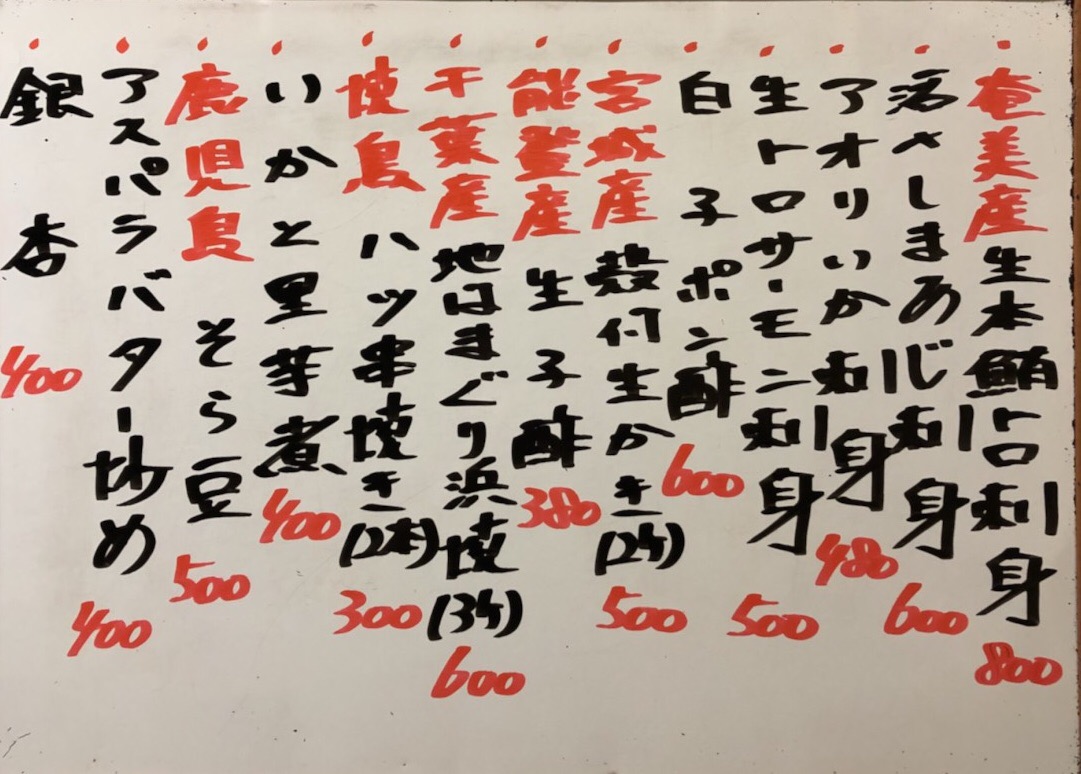 奄美産生本鮪トロ刺身 800
活〆しまあじ刺身 600
アオリいか刺身 480
生トロサーモン刺身 500
白子ポン酢 600
宮城産殻付生かき(2ケ) 500
能登産生子酢 380
千葉産地はまぐり浜焼(3ケ) 600
焼鳥ハツ串焼き(2本) 300
いかと里芋煮 400
鹿児島そら豆 500
アスパラバター炒め 400
銀杏 400